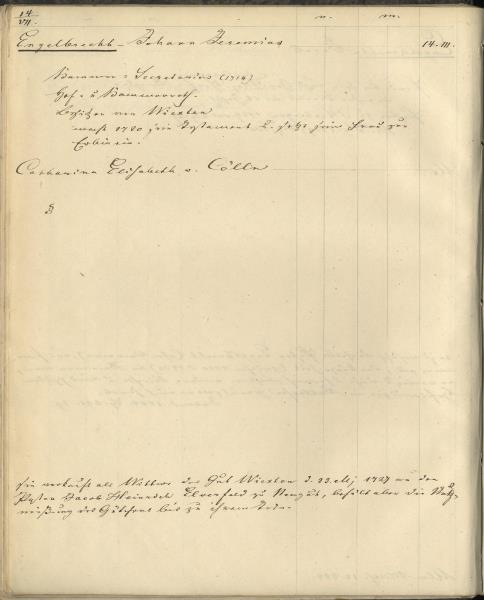 14
VII.
n. m.
Engelbrecht - Johann Jeremias 14.III.
Kammer-Secretarius (1714)
Hof- u Kammerrath.
Besitzer von Wiexten
macht 1720 sein Testament u. setzt seine Frau zur
Erbin ein.
Catharina Elisabeth v. Cölln
Sie verkauft als Wittwe das Gut Wiexten d. 23. 1727 an den
Pastor Jacob Heinrich Elverfeld zu Neugut, behält aber die
des Gütchens bis zu ihrem Tode.